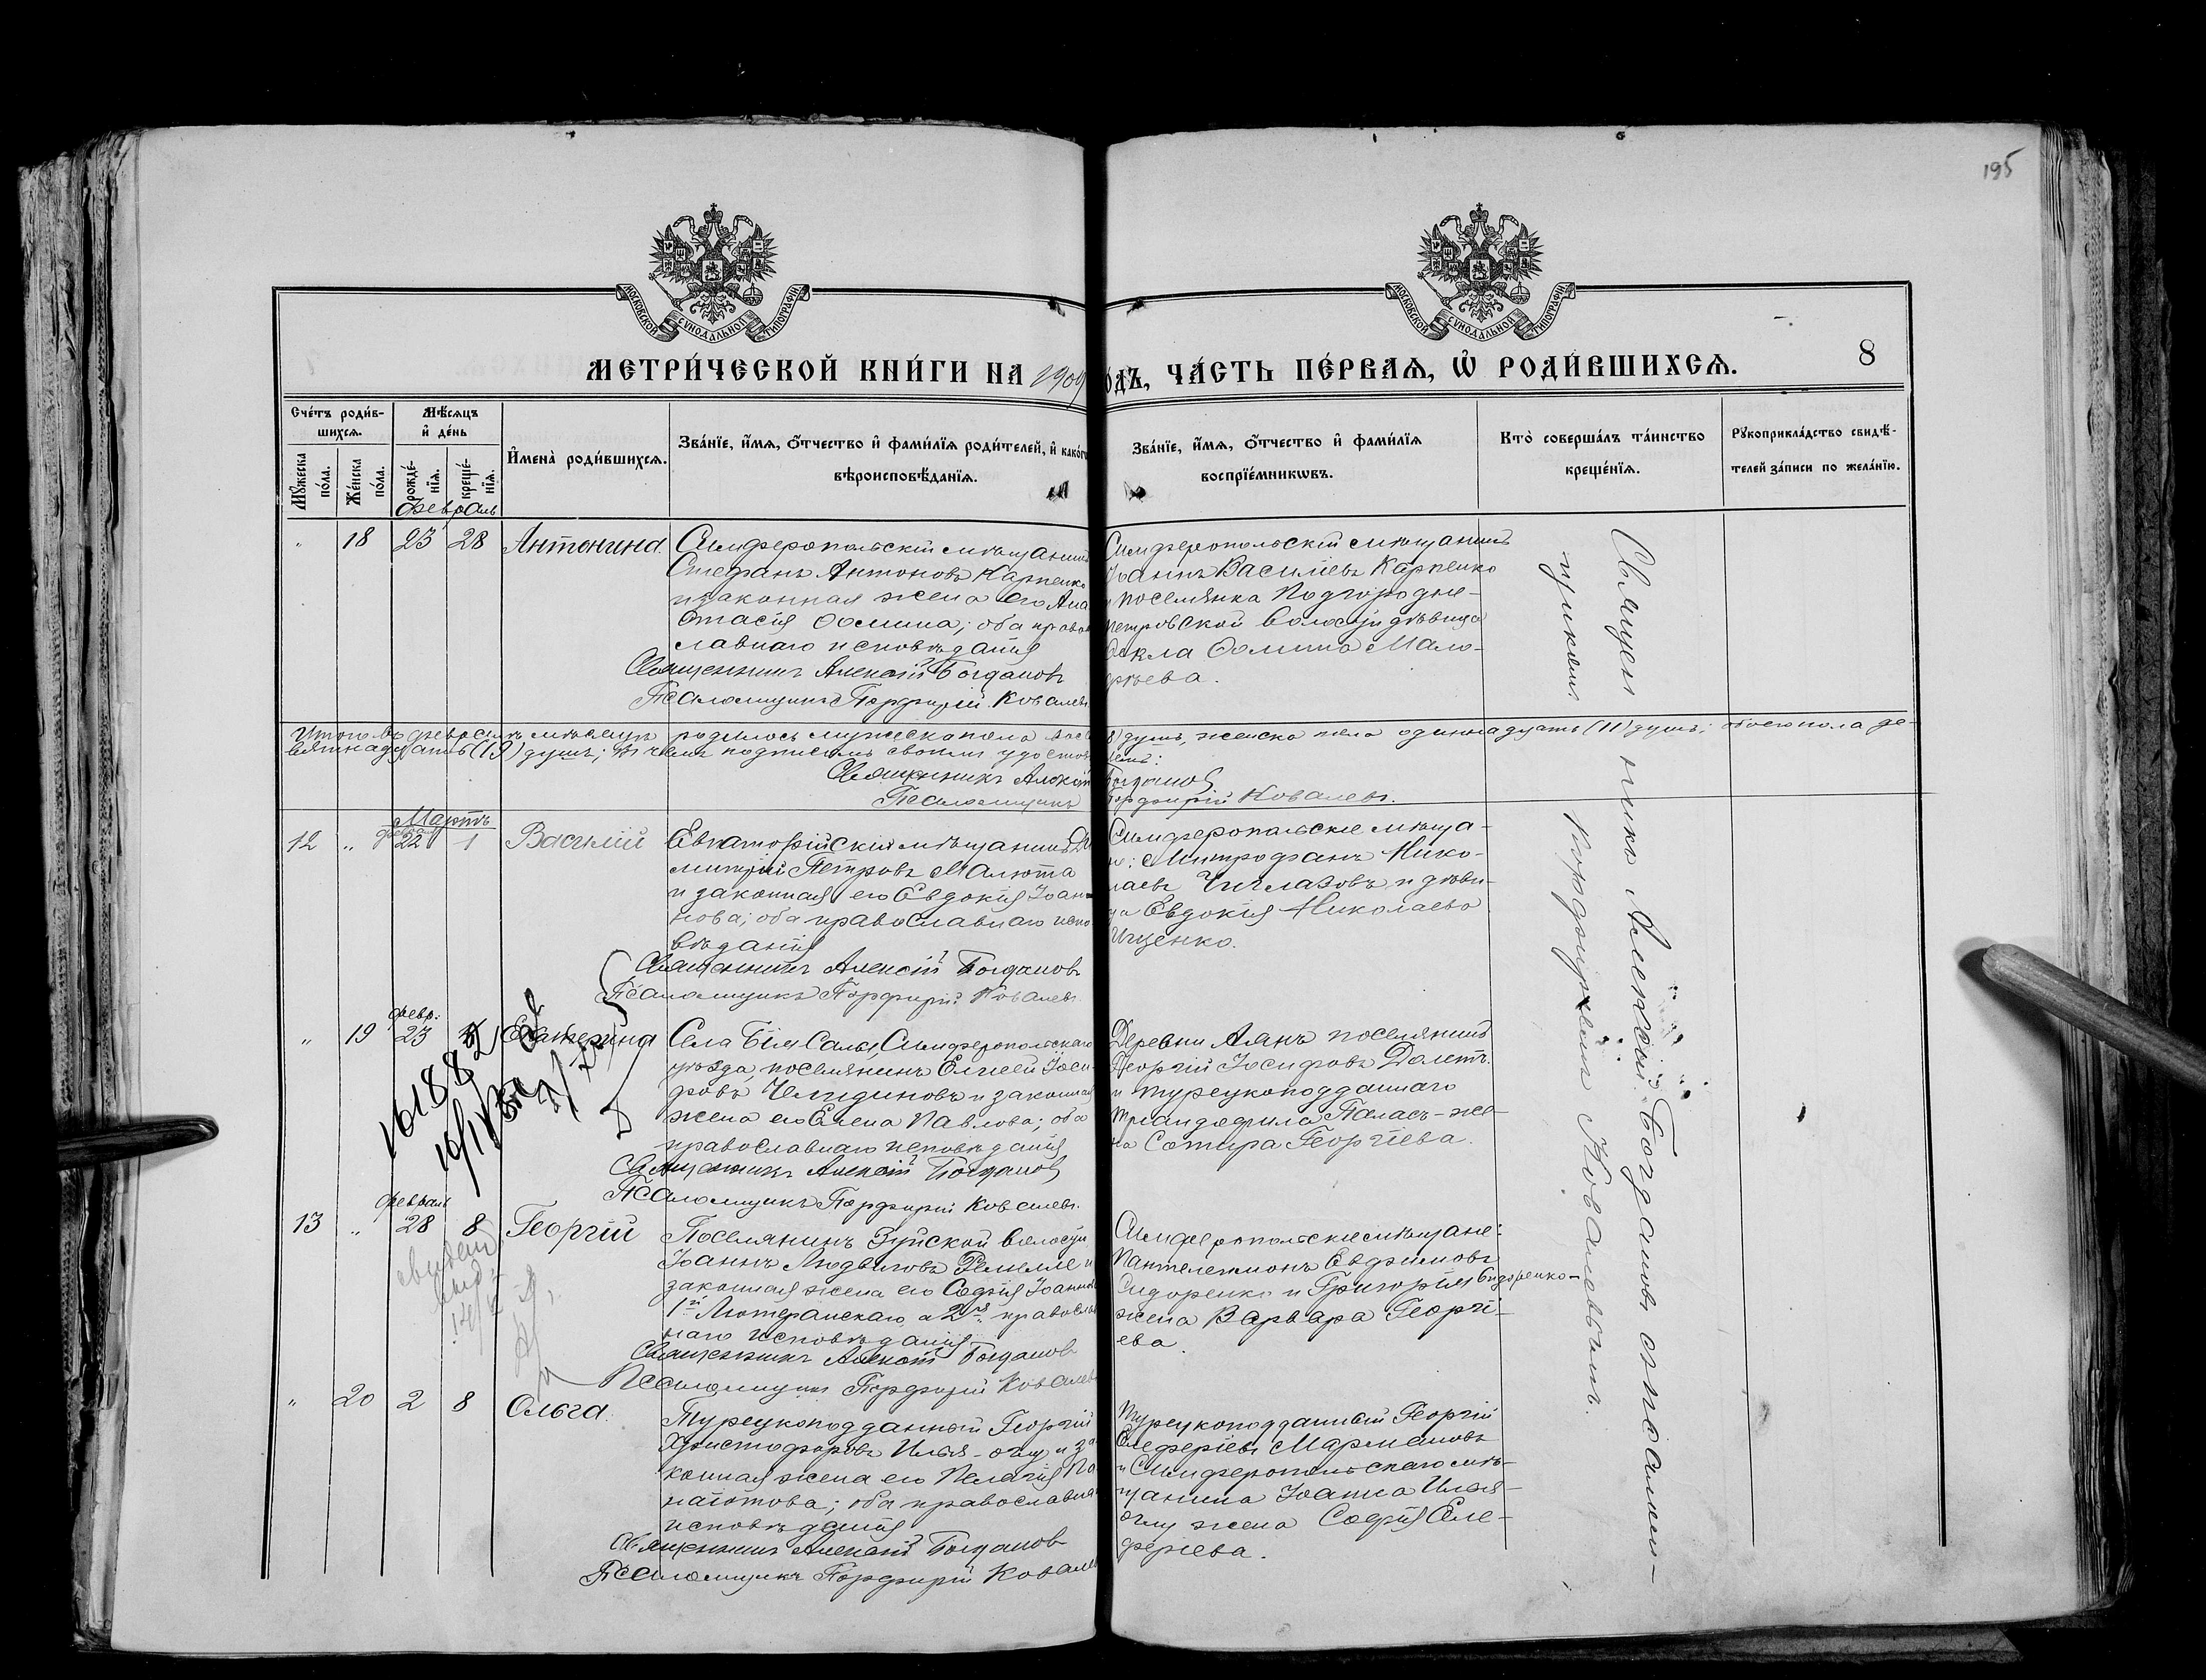 195
МОСКОВСКОЙ СУНОДАЛЬНОЙ ТИПОГРАФІИ
МОСКОВСКОЙ СУНОДАЛЬНОЙ ТИПОГРАФІИ
МЕТРИ́ЧЕСКОЙ КНИ́ГИ НА 1909
ОДЪ, ЧА́СТЬ ПЕ́РВАѦ, Ѽ РОДИ́ВШИХСѦ.
8
Сче́тъ роди́в-
шихсѧ.
Мѣ́сѧцъ
и҆ де́нь
Мꙋ́жеска по́ла.
Же́нска по́ла.
рожде́-
нїѧ.
креще́-
нїѧ.
И҆мена̀ роди́вшихсѧ.
Зва́нїе, и҆́мѧ, ѻ҆́тчество и҆ фами́лїѧ роди́телей, и҆ како́гѡ
вѣроисповѣ́данїѧ.
Зва́нїе, и҆́мѧ, ѻ҆́тчество и҆ фами́лїѧ
воспрїе́мникѡвъ.
Кто̀ соверша́лъ та́инство
креще́нїѧ.
Рꙋкоприкла́дство свидѣ́-
телей за́писи по жела́нїю.
Февраль
" 18 23 28 Антонина.
Симферопольскій мѣщанинъ
Стефанъ Антоновъ Карпенко
и законная жена его Ана
стасія Ѳомина; оба право
славнаго исповѣданія
Священникъ Алексій Богдановъ
Псаломщикъ Порфирій Ковалевъ
Симферопольскій мѣщанинъ
Іоаннъ Василіевъ Карпенко
и поселянка Подгородне-
петровской волости дѣвица
Ѳекла Ѳомина Мало-
фѣева.
Итого въ февралѣ мѣсяцѣ родилось мужеска пола вос
8) душъ, женска пола одиннадцать (11) душъ; обоего пола де-
вятнадцать (19) душъ; въ чемъ подписомъ своимъ удостов
Священникъ Алексій
Богдановъ
Псаломщикъ
Порфирій Ковалевъ.
Мартъ
февраля
12 " 22 1 Василій
Евпаторійскій мѣщанинъ Ди
митрій Петровъ Малюта
и законная его Евдокія Іоан
нова; оба православнаго испо
вѣданія
Священникъ Алексій Богдановъ
Псаломщикъ Порфирій Ковалевъ.
Симферопольскіе мѣща-
не: Митрофанъ Нико-
лаевъ Чиглазовъ и дѣви-
ца Евдокія Николаева
Ищенко.
февр.
" 19 23 Екатерина
161882
Села Бія Салы, Симферопольскаго
уѣзда, поселянинъ Елисей Іоси
фовъ Челидиновъ и законная
жена его Елена Павлова; оба
православнаго исповѣданія
Священникъ Алексій Богдановъ
Псаломщикъ Порфирій Ковалевъ.
Деревни Аянъ поселянинъ
Георгій Іосифовъ Далетъ
и турецкоподданнаго
Тріандафила Паласъ-же-
на Сотира Георгіева.
Февраль
13 " 28 8 Георгій
Поселянинъ Зуйской волости
Іоаннъ Людвиговъ Реммле и
законная жена его Софія Іоаннова
1й Лютеранскаго, а 2я. православ
наго исповѣданія
Священникъ Алексій Богдановъ
Псаломщикъ Порфирій Ковалевъ
Симферопольскіе мѣщане:
Пантелеимонъ Евфимовъ
Сидоренко и Григорія Сидоренко-
жена Варвара Георгі-
ева.
" 20 2 8 Ольга.
Турецкоподданный Георгій
Христофоровъ Илья-оглу и за
конная жена его Пелагія Па
наіотова; оба православна
исповѣданія
Священникъ Алексій Богдановъ
Псаломщикъ Порфирій Ковалевъ
Турецкоподданный Георгій
Елеферіевъ Мармановъ
и Симферопольскаго мѣ-
щанина Іоанна Илья-
оглу жена Софія Еле-
феріева.
Священникъ Алексій Богдановъ съ псалом-
щикомъ Порфиріемъ Ковалевымъ.